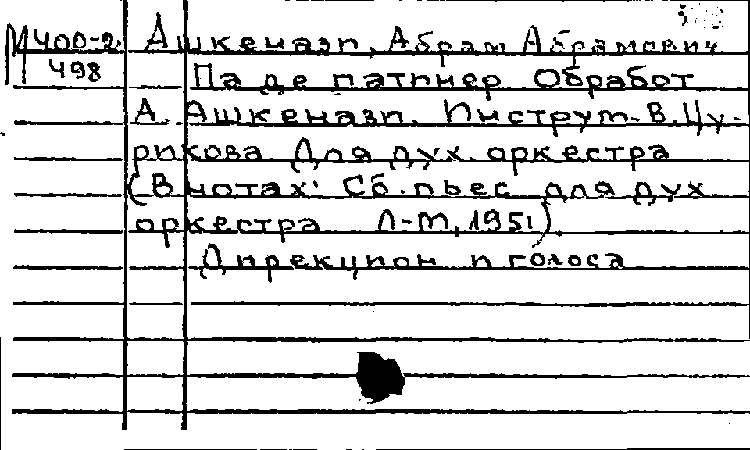 М 400-2 Ашкенази, Абрам Абрамович
498 Па де патинер. Обработ.
А. Ашкенази. Инструм. В. Цу-
рикова. Для дух. оркестра
(В нотах: Сб. пьес для дух.
оркестра Л-М, 1951).
Дирекцион и голоса